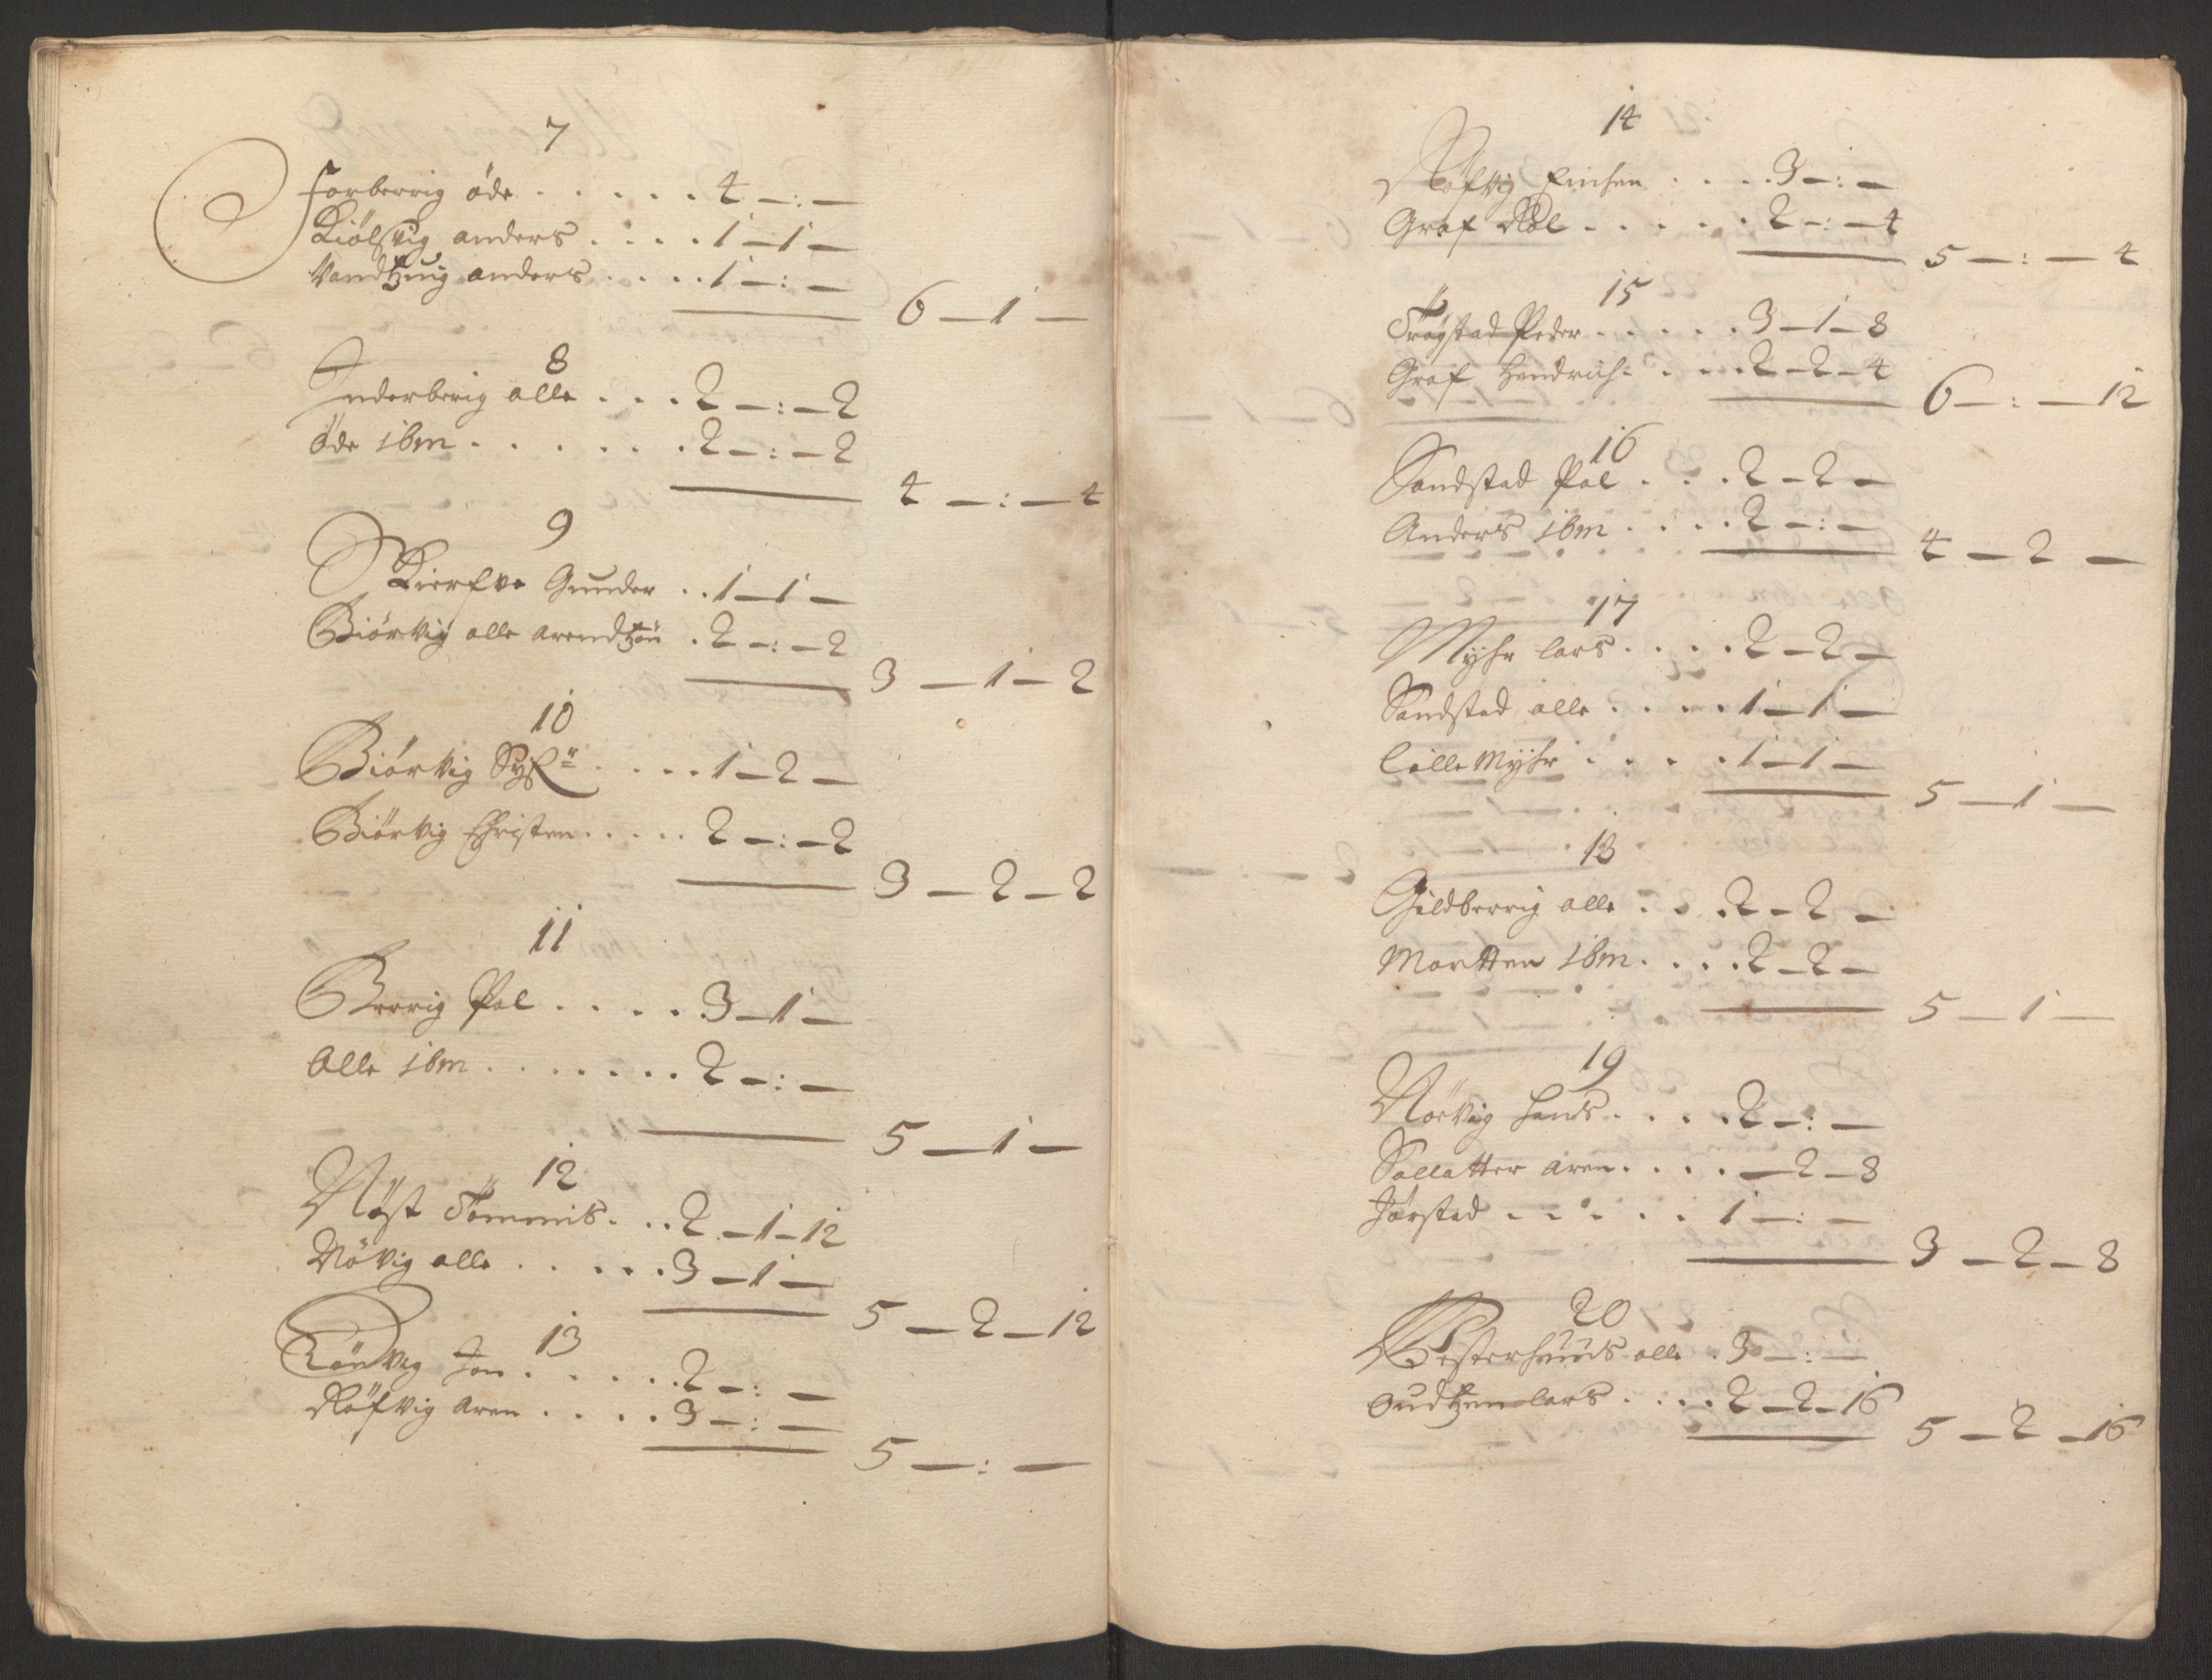 7
Forberrig öde . . . . . . 4 – : –
Kiölsvig anders . . . . 1 – 1 –
Vandtzuig anders . . . . 1 – : –
6 – 1 –
8
Inderberig olle . . . 2 – : – 2
öde ibm . . . . . . 2 – : – 2
4 – : – 4
9
Skierfve Gunder . . 1 – 1 –
Biörvig olle arendtzön . 2 – : – 2
3 – 1 – 2
10
Biörvig . . . . 1 – 2 –
Biörvig Christen . . . . . 2 – : – 2
3 – 2 – 2
11
Brerig Pol . . . . . 3 – 1 –
Olle ibm . . . . . . . 2 – : –
5 – 1 –
12
Nöst Tömmis . . . 2 – 1 – 12
Növig olle . . . . . 3 – 1 –
5 – 2 – 12
13
Rönvig Jon . . . . . 2 – : –
Röfvig Aren . . . . 3 – : –
5 – : –
14
Röfvig Einsen . . . . 3 – : –
Graf Pol . . . . . . 2 – : – 4
5 – : – 4
15
Trögstad Peder . . . . . 3 – 1 – 8
Graf Hendrich . . . . 2 – 2 – 4
6 – : – 12
16
Sandstad Pol . . . 2 – 2 –
Anders ibm . . . . 2 – : –
4 – 2 –
17
Myhr lars . . . . 2 – 2 –
Sandstad olle . . . . 1 – 1 –
Lille Myhr . . . . . 1 – 1 –
5 – 1 –
18
Gildberrig olle . . . 2 – 2 –
Mortten ibm . . . . 2 – 2 –
5 – 1 –
19
Nörvig Hans . . . . 2 – : –
Sallatter Aren . . . . – 2 – 8
Jörstad . . . . . . 1 – : –
3 – 2 – 8
20
Westerhuus olle . 3 – : –
Oudtzen lars . . . . 2 – 2 – 16
5 – 2 – 16